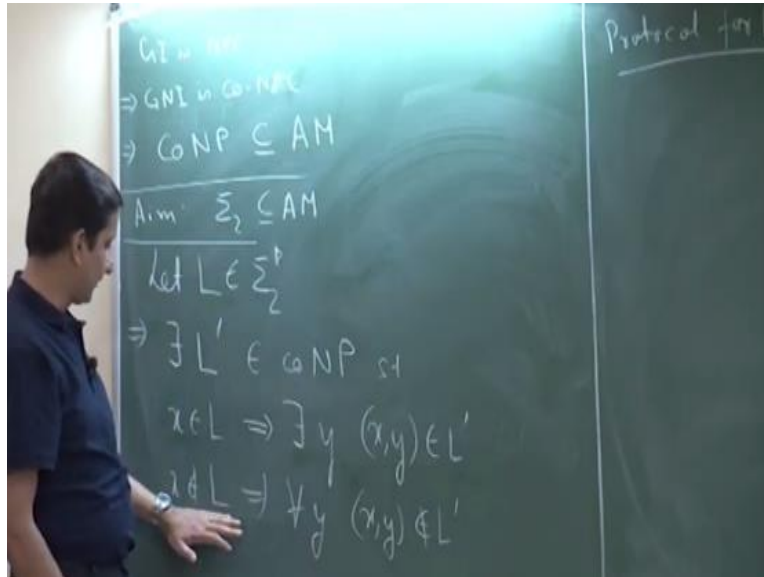 GI is NPC
⇒ GNI is Co-NPC
⇒ CoNP ⊆ AM
Aim. Σ₂ ⊆ AM
Let L ∈ Σ₂ᵖ
⇒ ∃ L' ∈ coNP st
x ∈ L ⇒ ∃ y (x,y) ∈ L'
x ∉ L ⇒ ∀ y (x,y) ∉ L'
Protocol for